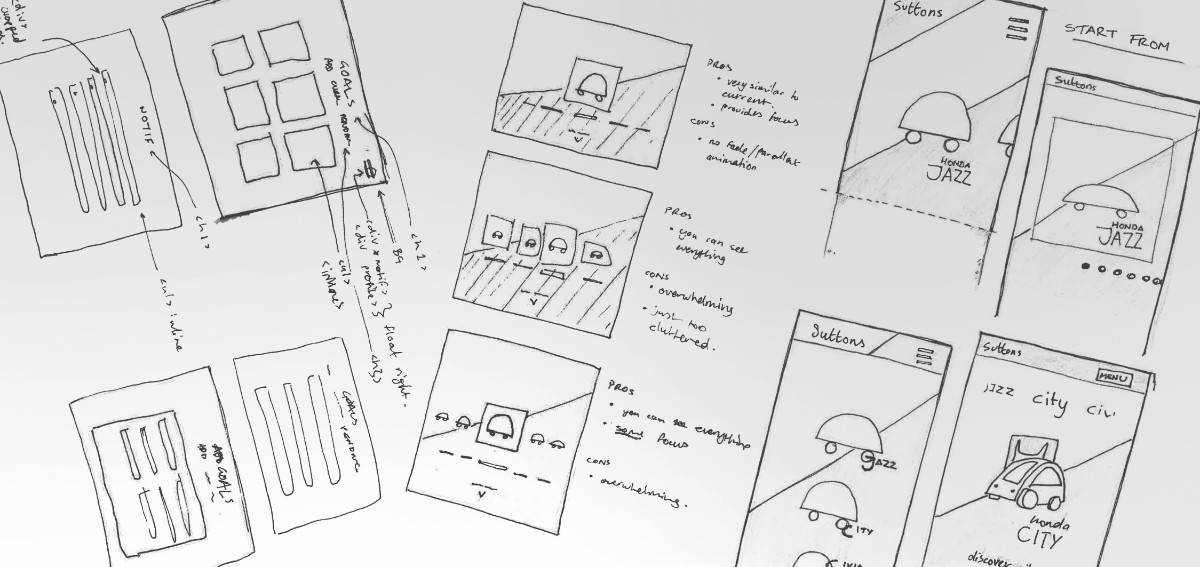 <div>
NOTIF
<h1>
<ul> inline
GOALS
<h2>
BG
<div notif>
<div profile>
} float right.
<ul>
<h3>
GOALS
ADD GOALS
ADD
PROS
• very similar to
current.
• provides focus
CONS
• no fade/parallax
animation
PROS
• you can see
everything
CONS
• overwhelming
• just too
cluttered.
PROS
• you can see everything
• some focus
CONS
• overwhelming.
Suttons
HONDA
JAZZ
START FROM
Suttons
HONDA
JAZZ
Suttons
JAZZ
CITY
Suttons
MENU
jazz city civi
honda
CITY
discover